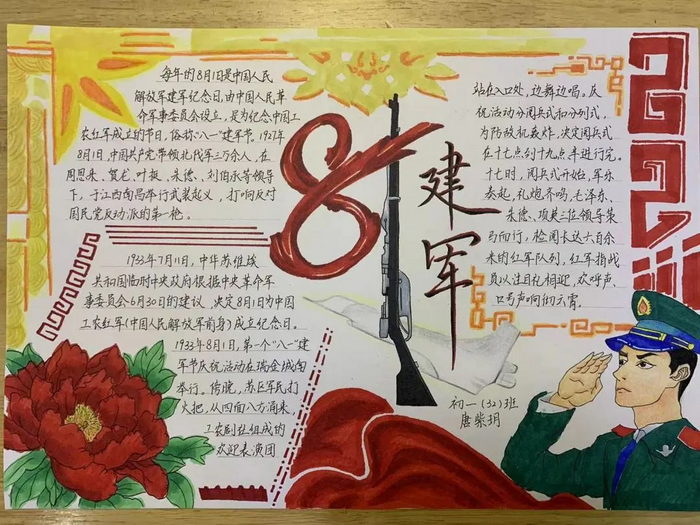 每年的8月1日是中国人民
解放军建军纪念日,由中国人民革
命军事委员会设立,是为纪念中国工
农红军成立的节日,俗称“八一”建军节。1927年
8月1日,中国共产党带领北伐军三万余人,在
周恩来、贺龙、叶挺、朱德、刘伯承等领导
下,于江西南昌举行武装起义,打响反对
国民党反动派的第一枪。
1933年7月11日,中华苏维埃
共和国临时中央政府根据中央革命军
事委员会6月30日的建议,决定8月1日为中国
工农红军(中国人民解放军前身)成立纪念日。
1933年8月1日,第一个“八一”建
军节庆祝活动在瑞金城内
举行。傍晚,苏区军民打
火把,从四面八方涌来,
工农剧社组成的
欢迎表演团
81
建军
站在入口处,边舞边唱,庆
祝活动分阅兵式和分列式,
为防敌机轰炸,决定阅兵式
在十七点到十九点半进行完。
十七时,阅兵式开始,军乐
奏起,礼炮齐鸣,毛泽东、
朱德、项英三位领导策
马而行,检阅长达六百余
米的红军队列,红军指战
员以注目礼相迎,欢呼声、
口号声响彻云霄。
初一(32)班
唐紫玥